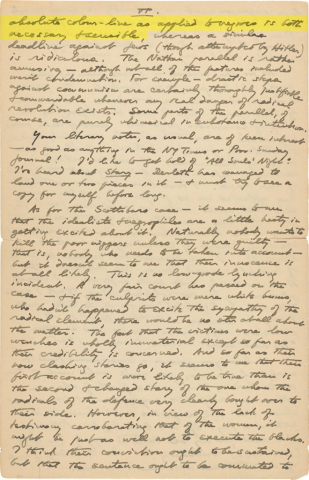 VI.
absolute colour-line as applied to negroes is both
necessary & sensible, whereas a similar
deadline against Jews (though attempted by Hitler)
is ridiculous. The Nathan parallel is rather
amusing — although not all of the points included
merit condemnation. For example — drastic steps
against communism are certainly thoroughly justifiable
& commendable wherever any real danger of radical
revolution exists. Some parts of the parallel, of
course, are purely whimsical
Your library notes, as usual, are of keen interest
— as good as anything in the NY Times or Prov. Sunday
Journal! I'd like to get hold of "All Souls' Night".
I've heard about Story — Derleth has managed to
land one or two pieces in it — & must try & see a
copy for myself before long.
As for the Scottsboro case — it seems to me
that the idealists & negrophiles are a little hasty in
getting excited about it! Naturally nobody wants to
kill the poor niggers unless they were guilty —
that is, nobody who needs to be taken into account —
but it doesn't seem to me that their innocence is
at all likely. This is no low-grade lynching
incident. A very fair court has passed on the
case — & if the culprits were mere white bums,
who hadn't happened to excite the sympathy of the
radical element, there would be no stir at all about
the matter. The fact that the victims were low
wenches is wholly immaterial except so far as
their credibility is concerned. And so far as their
now clashing stories go, it seems to me that their
first account is more likely to be true than is
the second & changed story of the one whom the
radicals of the defence very clearly bought over to
their side. However, in view of the lack of
testimony corroborating that of the women, it
might be just as well not to execute the blacks.
I think their conviction ought to be sustained,
but that the sentence ought to be commuted to